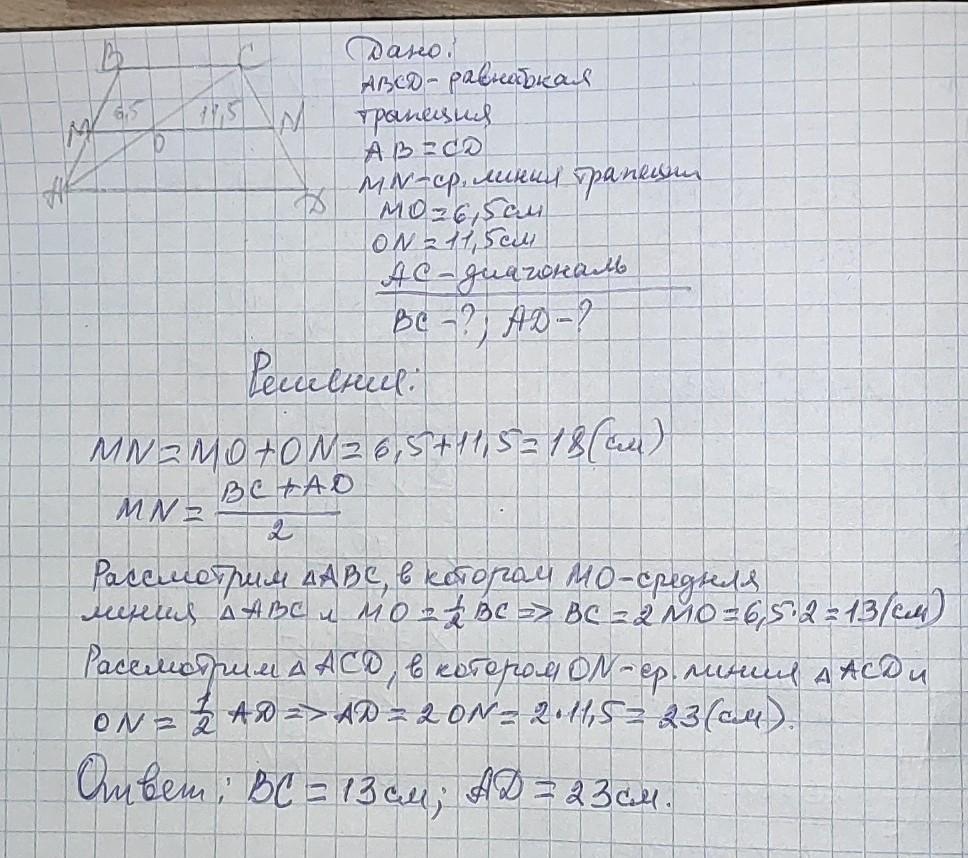 B C
6,5 11,5
M O N
A D
Дано:
ABCD - равнобкая
трапеция
AB = CD
MN - ср. линия трапеции
MO = 6,5 см
ON = 11,5 см
AC - диагональ
BC - ?; AD - ?
Решение:
MN = MO + ON = 6,5 + 11,5 = 18 (см)
MN = (BC + AD) / 2
Рассмотрим △ABC, в котором MO - средняя
линия △ABC и MO = 1/2 BC => BC = 2 MO = 6,5 · 2 = 13 (см)
Рассмотрим △ACD, в котором ON - ср. линия △ACD и
ON = 1/2 AD => AD = 2 ON = 2 · 11,5 = 23 (см).
Ответ: BC = 13 см; AD = 23 см.